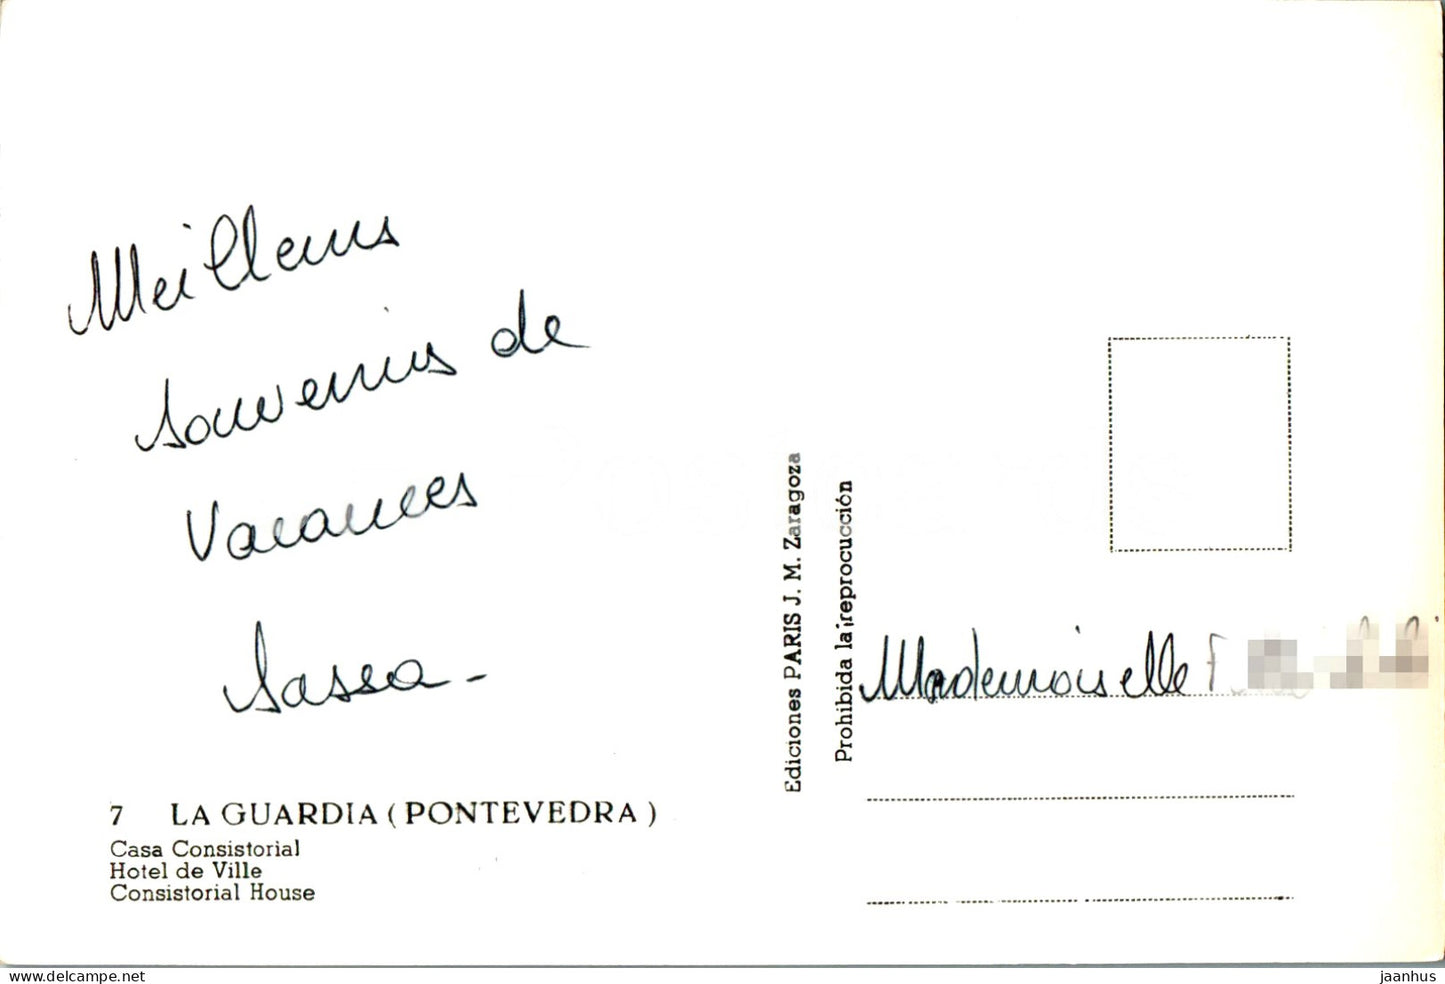 Meilleurs
souvenirs de
Vacances
7 LA GUARDIA ( PONTEVEDRA )
Casa Consistorial
Hotel de Ville
Consistorial House
Ediciones PARIS J. M. Zaragoza
Prohibida la reprocucción
Mademoiselle F
www.delcampe.net
jaanhus